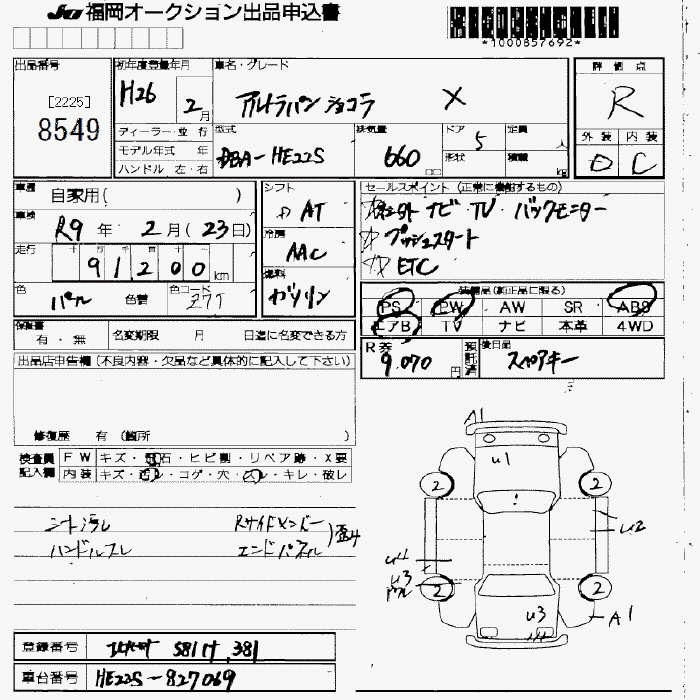 JU 福岡オークション出品申込書
*1000857692*
出品番号
[2225]
8549
初年度登録年月
H26 2月
車名・グレード
アルトラパンショコラ X
評価点
R
外装 内装
D C
ディーラー・並行
モデル年式 年
ハンドル 左・右
型式
DBA-HE22S
排気量
660 cc
ドア
5
形状
定員
人
積載
kg
車歴
自家用( )
車検
R9 年 2 月 ( 23 日)
走行
十 万 千 百 十
91200 km
色
パール
色替
色コード
Z7T
シフト
AT
冷房
AAC
燃料
ガソリン
セールスポイント (正常に機能するもの)
社外 ナビ・TV・バックモニター
プッシュスタート
ETC
装備品(純正品に限る)
PS PW AW SR ABS
エアB TV ナビ 本革 4WD
保証書
有・無
名変期限 月 日迄に名変できる方
R券
9,070円
預託済
後日品
スペアキー
出品店申告欄 (不良内容・欠品など具体的に記入して下さい)
修復歴 有 (箇所 )
検査員記入欄
FW キズ・飛石・ヒビ割・リペア跡・X要
内装 キズ・汚レ・コゲ・穴・スレ・キレ・破レ
シート汚レ
ハンドルスレ
Rサイドメンバー
エンドパネル
)歪み
A1
U1
2 2
U2
U4
U3
2 2
U3
A1
登録番号
581 け 381
車台番号
HE22S-827069